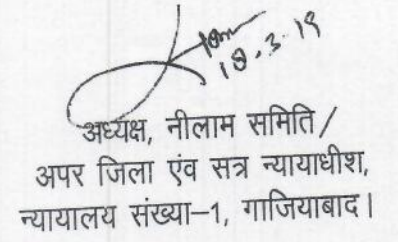 18.3.19
अध्यक्ष, नीलाम समिति /
अपर जिला एंव सत्र न्यायाधीश,
न्यायालय संख्या-1, गाजियाबाद।